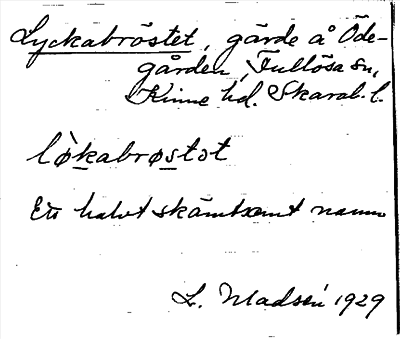 Lyckabröstet, gärde å Öde-
gården, Fullösa sn,
Kinne hd. Skarab. l.
lø̀kabrøstot
Ett halvt skämtsamt namn
L. Madsén 1929